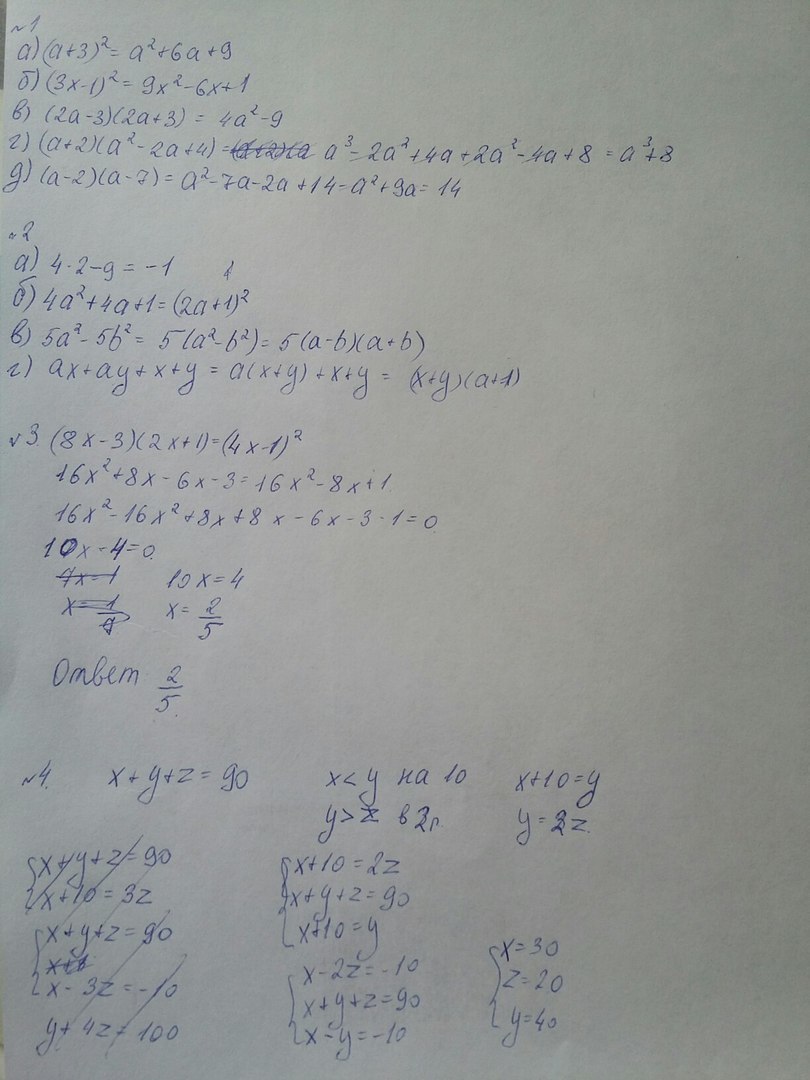 №1
а) (a+3)² = a²+6a+9
б) (3x-1)² = 9x²-6x+1
в) (2a-3)(2a+3) = 4a²-9
г) (a+2)(a²-2a+4) = a³-2a²+4a+2a²-4a+8 = a³+8
д) (a-2)(a-7) = a²-7a-2a+14-a²+9a = 14
№2
а) 4·2-9 = -1
б) 4a²+4a+1 = (2a+1)²
в) 5a²-5b² = 5(a²-b²) = 5(a-b)(a+b)
г) ax+ay+x+y = a(x+y)+x+y = (x+y)(a+1)
№3. (8x-3)(2x+1) = (4x-1)²
16x²+8x-6x-3 = 16x²-8x+1
16x²-16x²+8x+8x-6x-3-1=0
10x-4=0
7x=1 10x=4
x=1/7 x=2/5
Ответ 2/5.
№4. x+y+z=90 x<y на 10 x+10=y
y>z в 2р. y=2z.
x+y+z=90
x+10=3z
x+y+z=90
x-3z=-10
y+4z=100
x+10=2z
x+y+z=90
x+10=y
x-2z=-10
x+y+z=90
x-y=-10
x=30
z=20
y=40